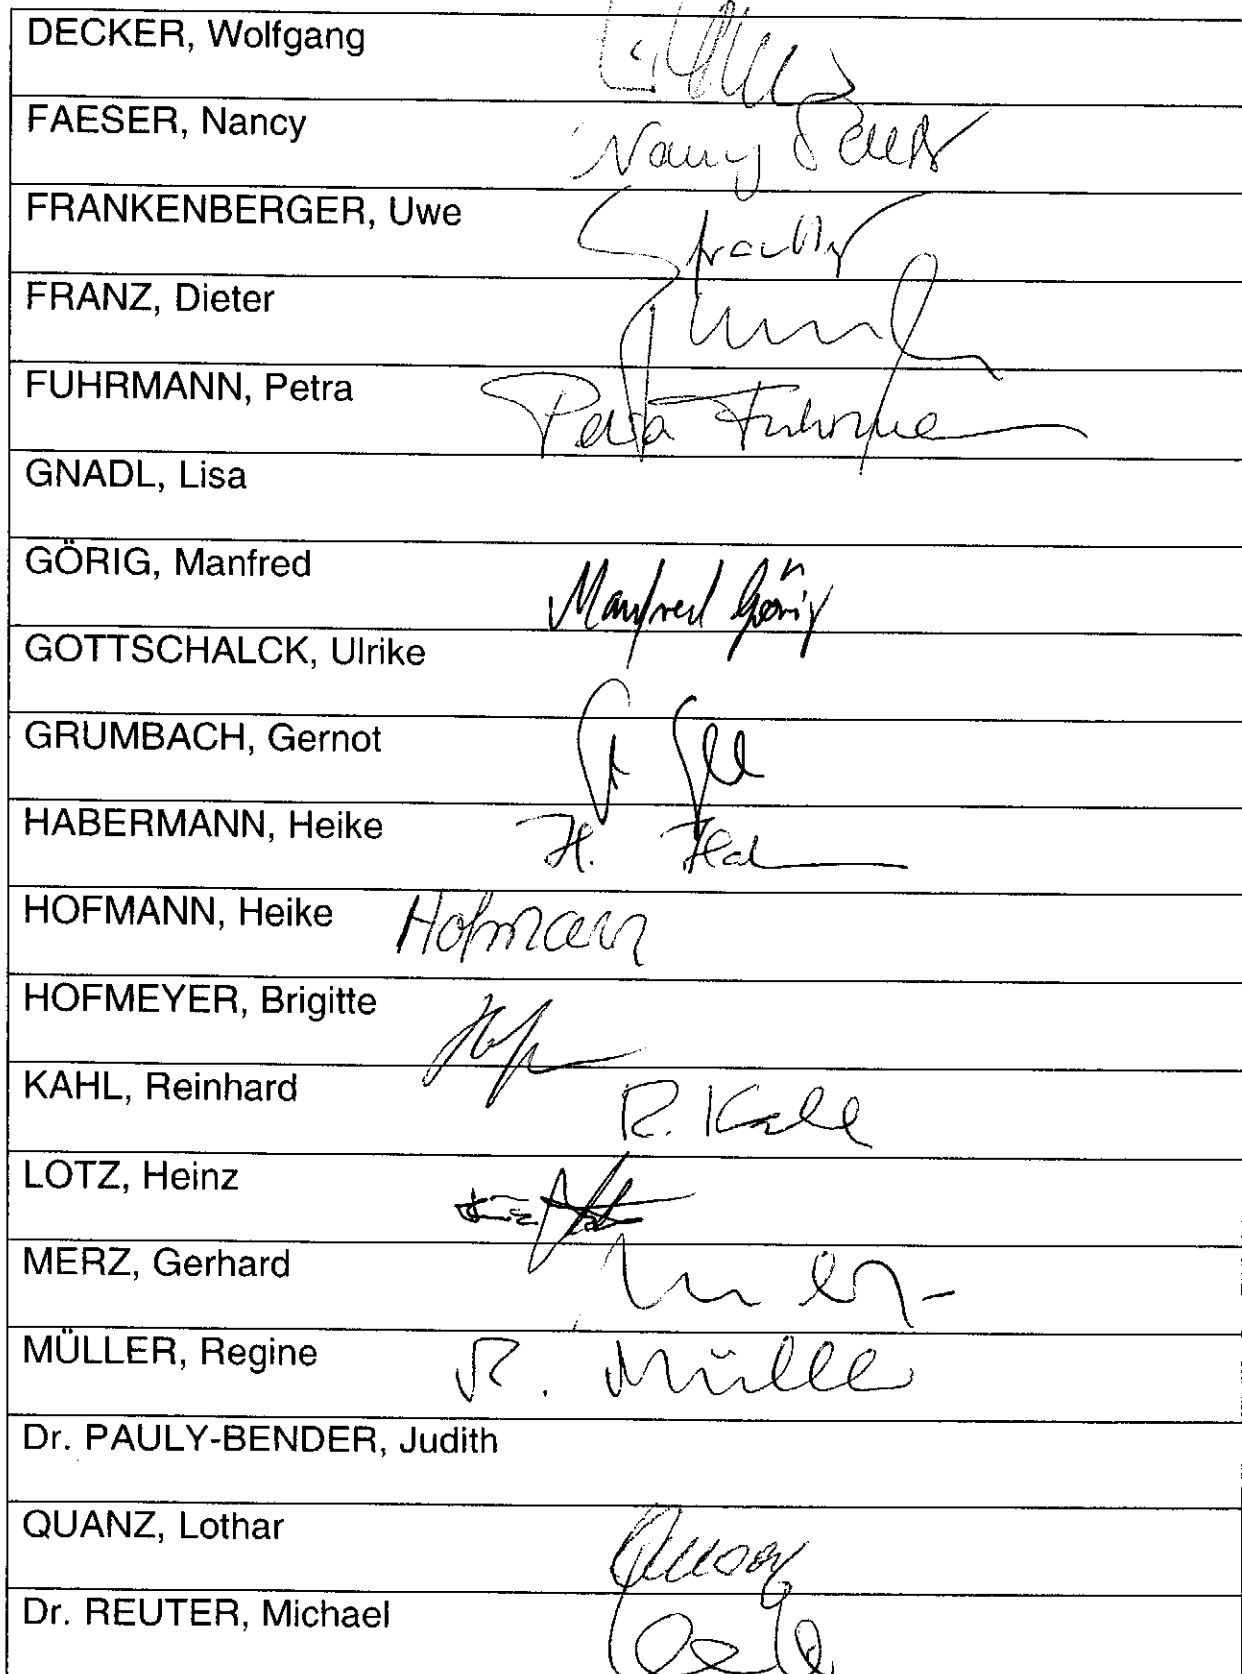 DECKER, Wolfgang
FAESER, Nancy
Nancy
FRANKENBERGER, Uwe
FRANZ, Dieter
FUHRMANN, Petra
Petra Fuhrmann
GNADL, Lisa
GÖRIG, Manfred
Manfred Görig
GOTTSCHALCK, Ulrike
GRUMBACH, Gernot
HABERMANN, Heike
H.
HOFMANN, Heike Hofmann
HOFMEYER, Brigitte
KAHL, Reinhard
R. Kahl
LOTZ, Heinz
MERZ, Gerhard
MÜLLER, Regine
R. Müller
Dr. PAULY-BENDER, Judith
QUANZ, Lothar
Dr. REUTER, Michael